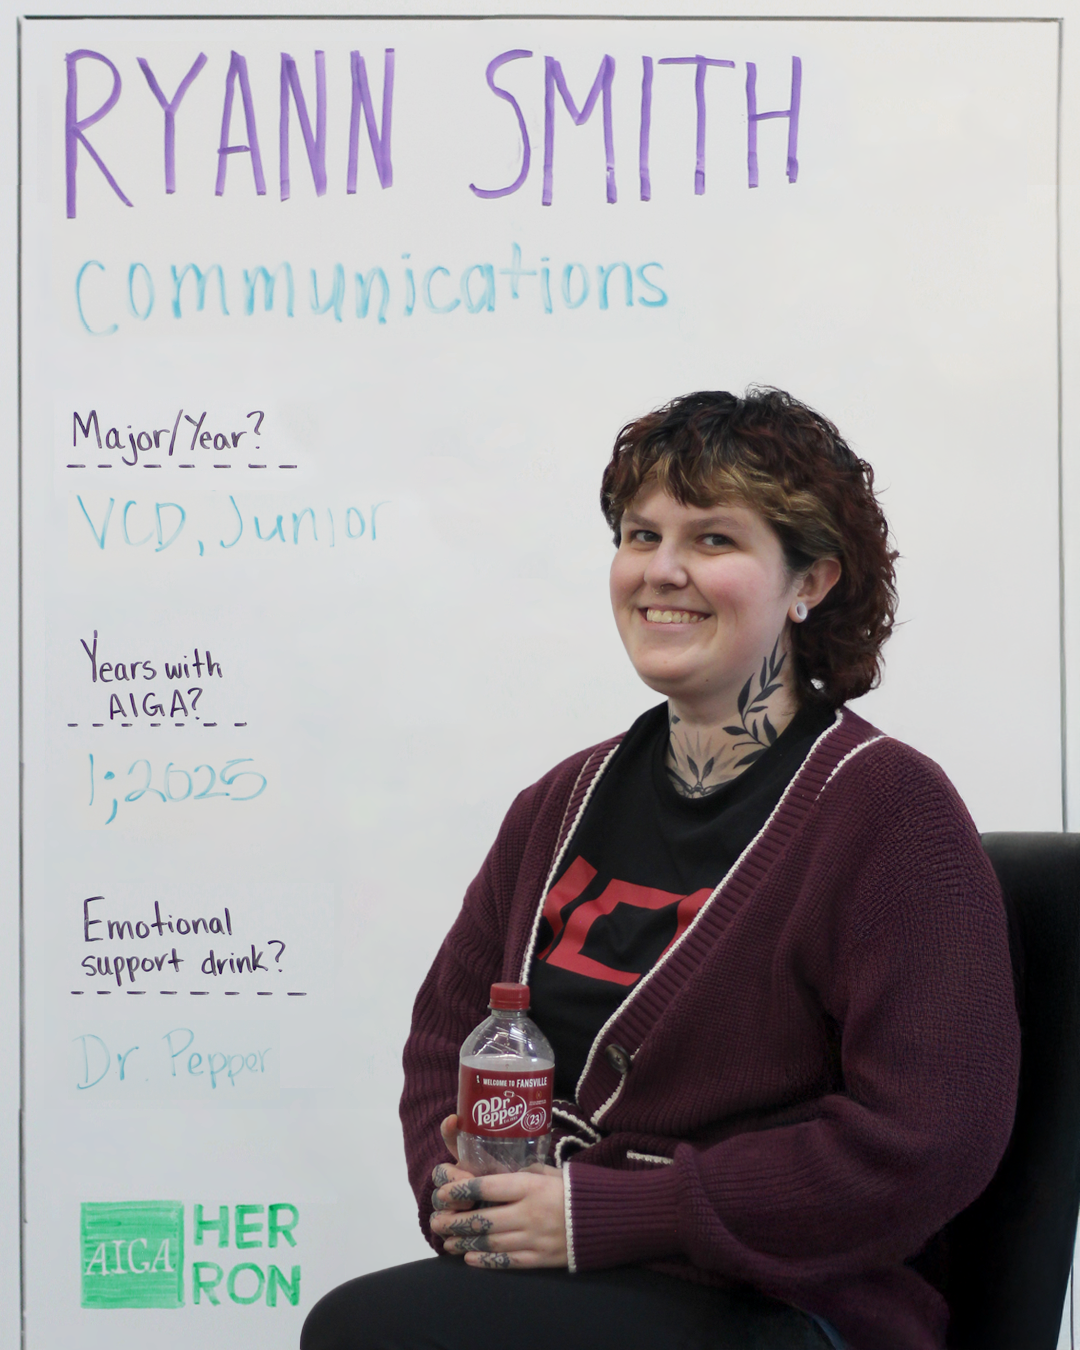 RYANN SMITH
communications
Major/Year?
VCD, Junior
Years with
AIGA?
1; 2025
Emotional
support drink?
Dr. Pepper
AIGA
HER
RON
WELCOME TO FANSVILLE
Dr
Pepper
23